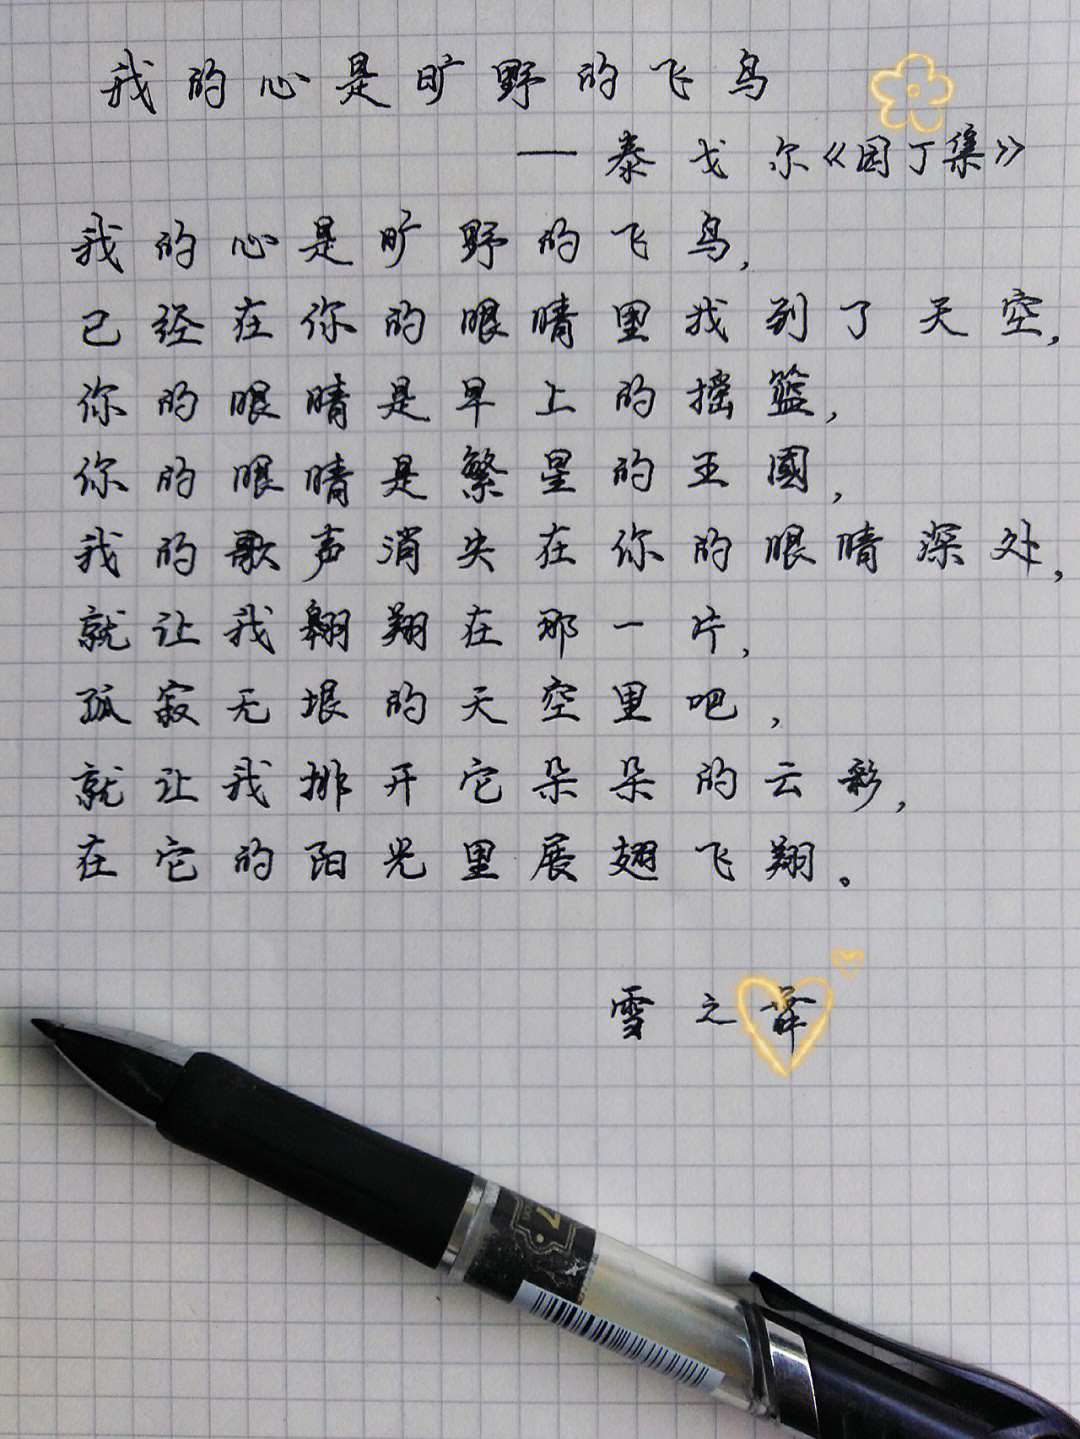 我的心是旷野的飞鸟
——泰戈尔《园丁集》
我的心是旷野的飞鸟，
已经在你的眼睛里找到了天空，
你的眼睛是早上的摇篮，
你的眼睛是繁星的王國，
我的歌声消失在你的眼睛深处，
就让我翱翔在那一片，
孤寂无垠的天空里吧，
就让我排开它朵朵的云彩，
在它的阳光里展翅飞翔。
雪之